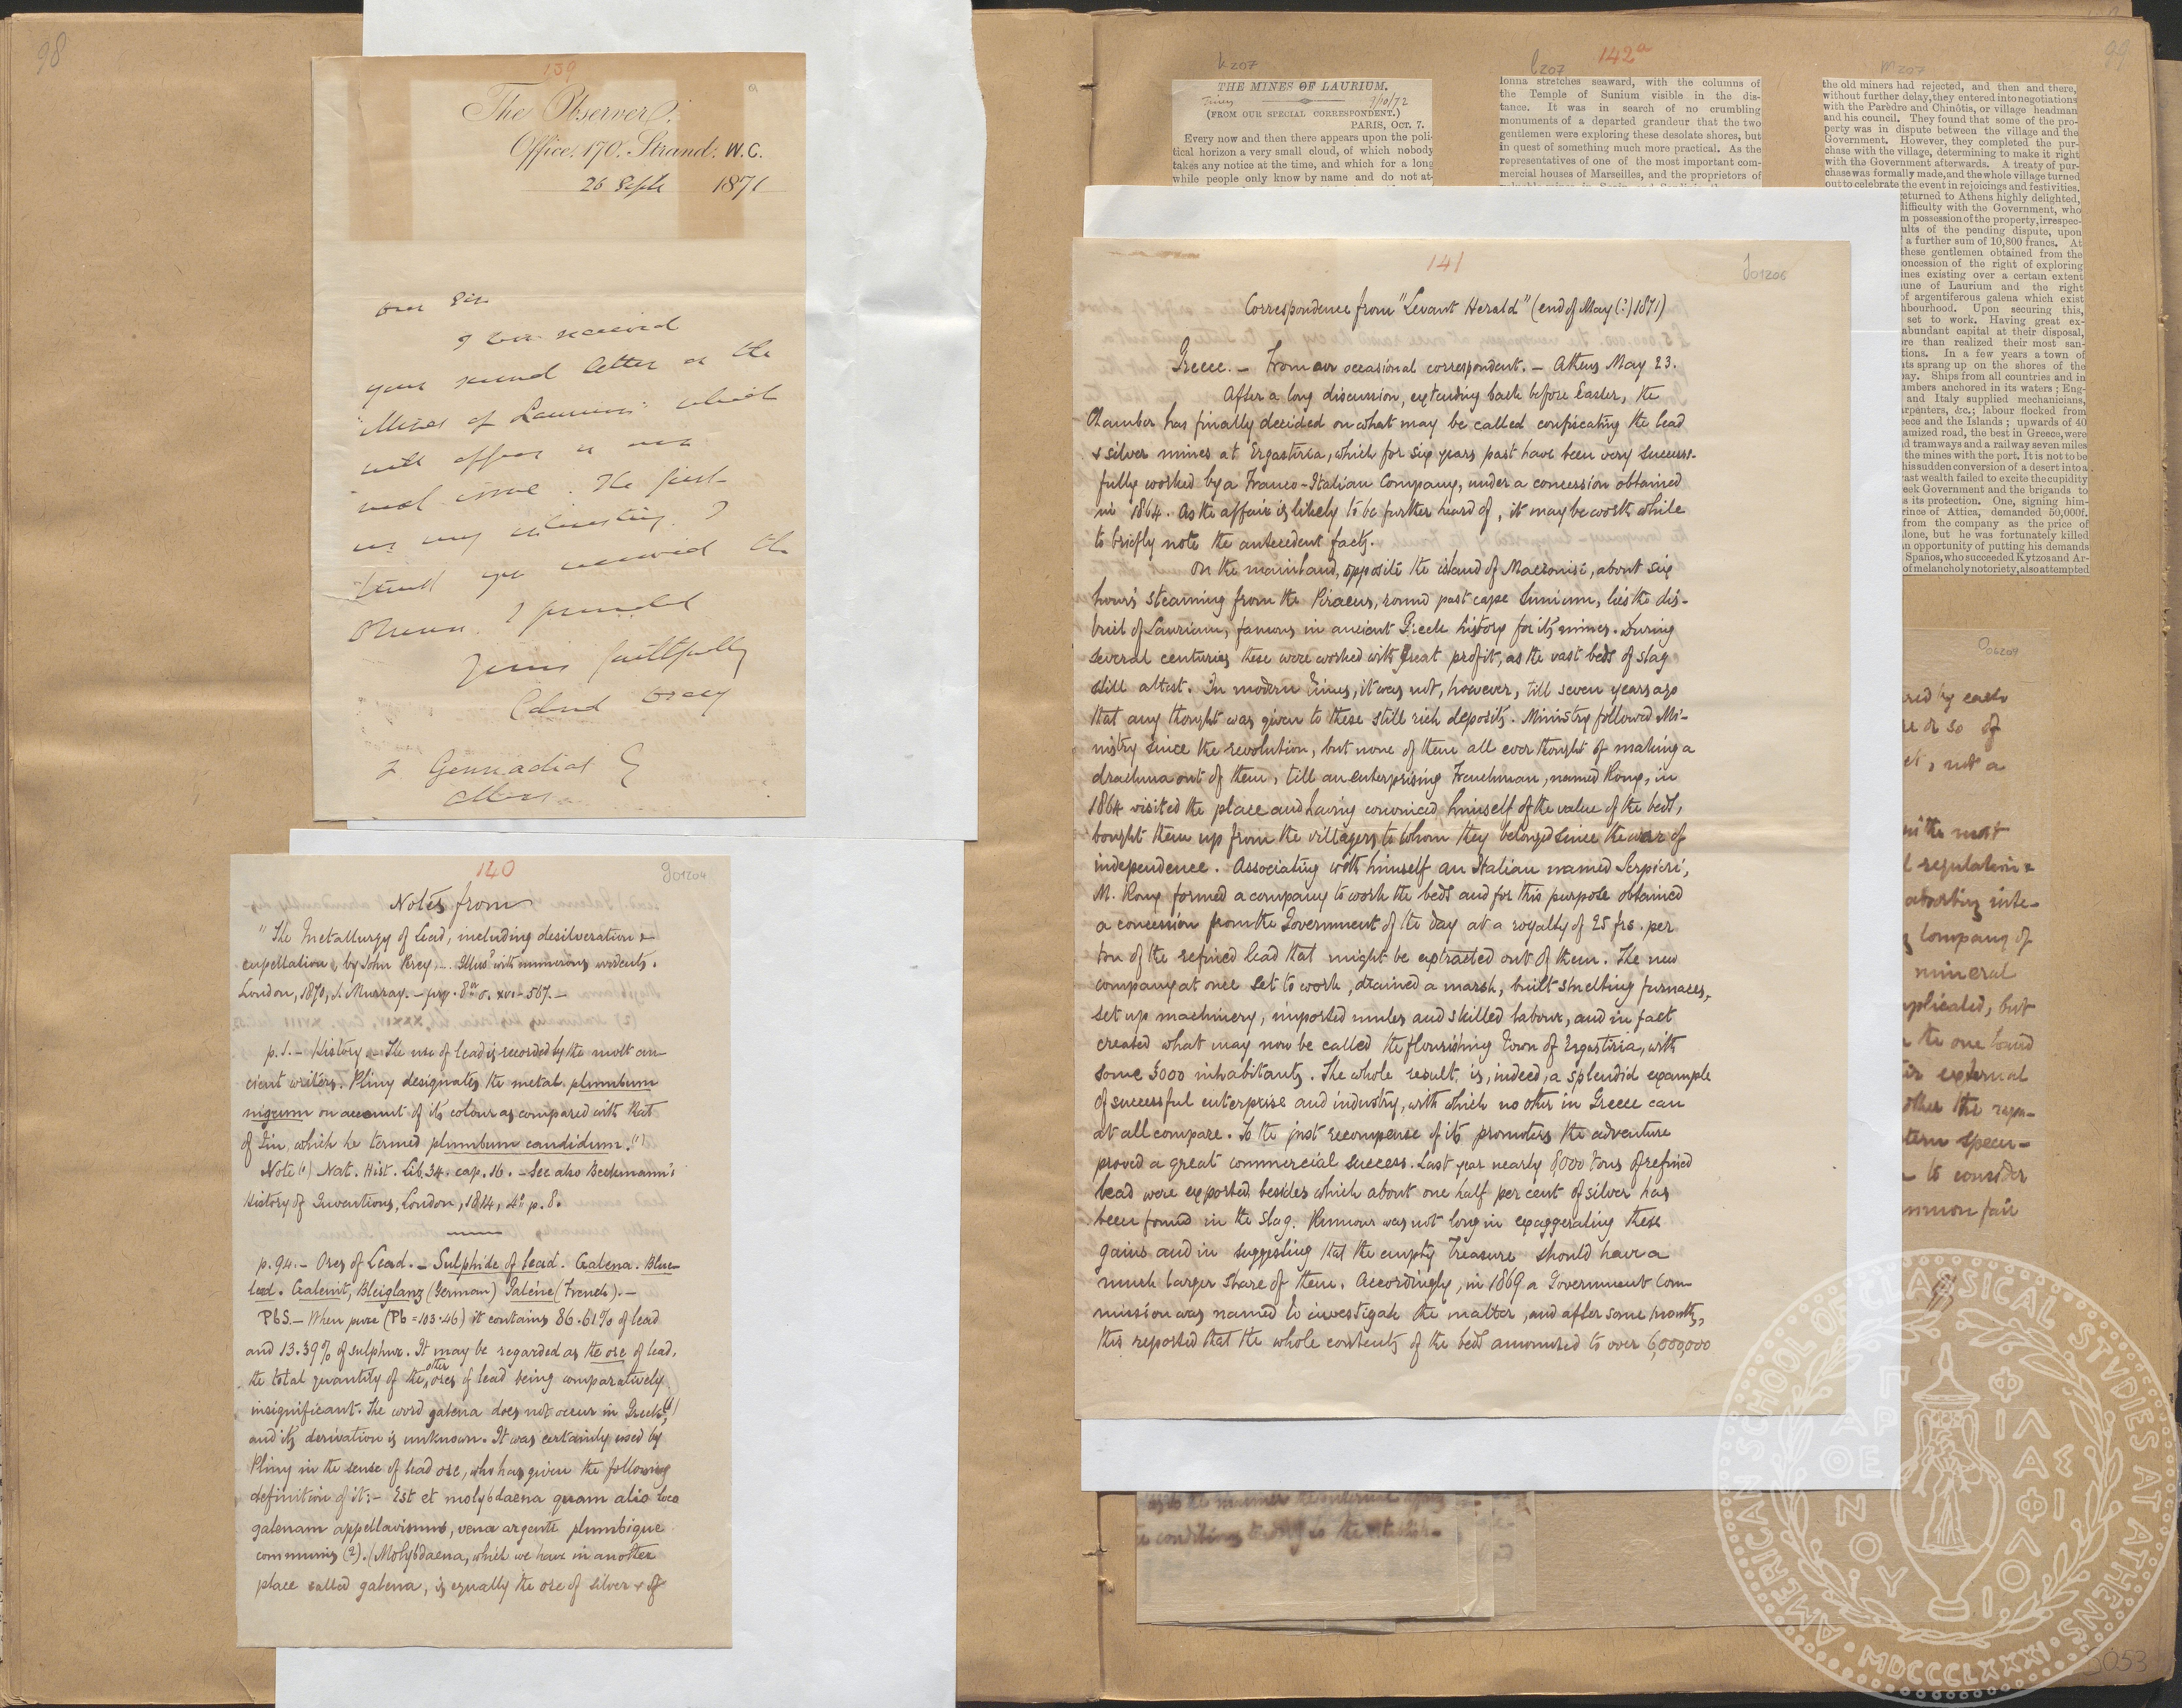 98
139
a
The Observer.
Office. 170. Strand. W.C.
26 Septr 1871
Dear Sir
I have received
your second letter on the
"Mines of Laurium" which
will appear in our
next issue. The first
was very interesting. I
you received the
Observer. I
Yours faithfully
J Gennadius Esq
140
g01204
Notes from
"The Metallurgy of Lead, including desilveration &
cupellation, by John Percy. - Illusd with numerous woodcuts.
London, 1870, J. Murray. - pp. 8vo. xvi-567. -
p.1. - History. - The use of lead is recorded by the most an-
cient writers. Pliny designates the metal plumbum
nigrum on account of its colour as compared with that
of tin, which he termed plumbum candidum.(1)
Note (1) Nat. Hist. Lib. 34. cap. 16. - See also Beckmann's
History of Inventions, London, 1814, 4. p. 8.
p. 94. - Ores of Lead. - Sulphide of lead. Galena. Blue-
lead. Galenit, Bleiglanz (German) Galène (French). -
PbS. - When pure (Pb = 103.46) it contains 86.61% of lead
and 13.39% of sulphur. It may be regarded as the ore of lead,
the total quantity of the other ores of lead being comparatively
insignificant. The word galena does not occur in Greek,(1)
and its derivation is unknown. It was certainly used by
Pliny in the sense of lead ore, who has given the following
definition of it: - Est et molybdaena quam alio loco
galenam appellavimus, vena argenti plumbique
communis (2). (Molybdaena, which we have in another
place called galena, is equally the ore of silver & of
99
k207
THE MINES OF LAURIUM.
Times 9/10/72
(FROM OUR SPECIAL CORRESPONDENT.)
PARIS, OCT. 7.
Every now and then there appears upon the poli-
tical horizon a very small cloud, of which nobody
takes any notice at the time, and which for a long
while people only know by name and do not at-
l207
142a
lonna stretches seaward, with the columns of
the Temple of Sunium visible in the dis-
tance. It was in search of no crumbling
monuments of a departed grandeur that the two
gentlemen were exploring these desolate shores, but
in quest of something much more practical. As the
representatives of one of the most important com-
mercial houses of Marseilles, and the proprietors of
m207
the old miners had rejected, and then and there,
without further delay, they entered into negotiations
with the Parèdre and Chinòtis, or village headman
and his council. They found that some of the pro-
perty was in dispute between the village and the
Government. However, they completed the pur-
chase with the village, determining to make it right
with the Government afterwards. A treaty of pur-
chase was formally made, and the whole village turned
out to celebrate the event in rejoicings and festivities.
returned to Athens highly delighted,
difficulty with the Government, who
m possession of the property, irrespec-
ults of the pending dispute, upon
a further sum of 10,800 francs. At
these gentlemen obtained from the
oncession of the right of exploring
ines existing over a certain extent
une of Laurium and the right
of argentiferous galena which exist
hbourhood. Upon securing this,
set to work. Having great ex-
abundant capital at their disposal,
ore than realized their most san-
tions. In a few years a town of
nts sprang up on the shores of the
bay. Ships from all countries and in
umbers anchored in its waters; Eng-
and Italy supplied mechanicians,
arpenters, &c.; labour flocked from
eece and the Islands; upwards of 40
amized road, the best in Greece, were
d tramways and a railway seven miles
the mines with the port. It is not to be
his sudden conversion of a desert into a
ast wealth failed to excite the cupidity
eek Government and the brigands to
s its protection. One, signing him-
rince of Attica, demanded 50,000f.
from the company as the price of
alone, but he was fortunately killed
an opportunity of putting his demands
Spaños, who succeeded Kytzos and Ar-
of melancholy notoriety, also attempted
141
j01206
Correspondence from "Levant Herald" (end of May (?) 1871)
Greece. - From our occasional correspondent. - Athens May 23.
After a long discussion, extending back before Easter, the
Chamber has finally decided on what may be called confiscating the lead
& silver mines at Ergastiria, which for six years past have been very success-
fully worked by a Franco-Italian Company, under a concession obtained
in 1864. As the affair is likely to be further heard of, it may be worth while
to briefly note the antecedent facts.
On the mainland, opposite the island of Macronisi, about six
hours' steaming from the Piraeus, round past cape Sunium, lies the dis-
trict of Laurium, famous in ancient Greek history for its mines. During
several centuries these were worked with great profit, as the vast beds of slag
still attest. In modern times, it was not, however, till seven years ago
that any thought was given to these still rich deposits. Ministry followed Mi-
nistry since the revolution, but none of them all ever thought of making a
drachma out of them, till an enterprising Frenchman, named Roux, in
1864 visited the place and having convinced himself of the value of the beds,
bought them up from the villagers to whom they belonged since the war of
independence. Associating with himself an Italian named Serpieri,
M. Roux formed a company to work the beds and for this purpose obtained
a concession from the Government of the day at a royalty of 25 frs. per
ton of the refined lead that might be extracted out of them. The new
company at once set to work, drained a marsh, built smelting furnaces,
set up machinery, imported mules and skilled labour, and in fact
created what may now be called the flourishing town of Ergastiria, with
some 3000 inhabitants. The whole result, is, indeed, a splendid example
of successful enterprise and industry, with which no other in Greece can
at all compare. To the just recompense of its promoters the adventure
proved a great commercial success. Last year nearly 8000 tons of refined
lead were exported besides which about one half per cent of silver has
been found in the slag. Rumour was not long in exaggerating these
gains and in suggesting that the empty Treasure should have a
much larger share of them. Accordingly, in 1869 a Government Com-
mission was named to investigate the matter, and after some months,
this reported that the whole contents of the beds amounted to over 6,000,000
red by each
re or so of
et, not a
in the most
l regulation &
absorbing inte-
g Company of
mineral
mplicated, but
the one hand
its external
other the repu-
tern specu-
to consider
mmon fair
the conditions
AMERICAN SCHOOL OF CLASSICAL STVDIES AT ATHENS
MDCCCLXXXI
ΠΑΡ ΘΕΝΟΥ
ΦΙΛΑΣ ΦΙΛΟΙ
3053